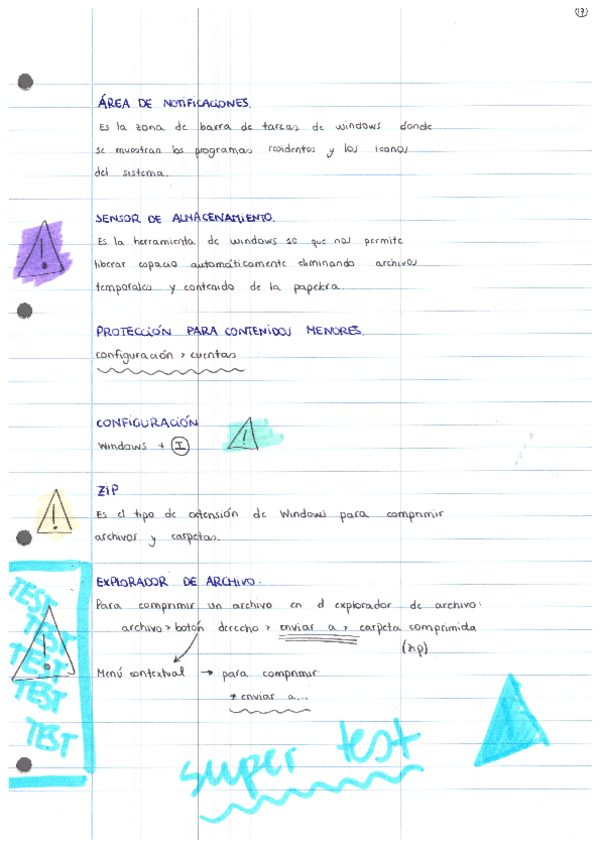 17
ÁREA DE NOTIFICACIONES.
Es la zona de barra de tareas de windows donde
se muestran los programas residentes y los iconos
del sistema.
SENSOR DE ALMACENAMIENTO.
Es la herramienta de windows 10 que nos permite
liberar espacio automáticamente eliminando archivos
temporales y contenido de la papelera.
PROTECCIÓN PARA CONTENIDOS MENORES.
configuración > cuentas
CONFIGURACIÓN
Windows + I
ZIP
Es el tipo de extensión de Windows para comprimir
archivos y carpetas.
EXPLORADOR DE ARCHIVO.
Para comprimir un archivo en el explorador de archivo:
archivo > botón derecho > enviar a > carpeta comprimida
(zip)
Menú contextual → para comprimir
* enviar a...
TEST
TEST
TEST
TEST
TEST
super test